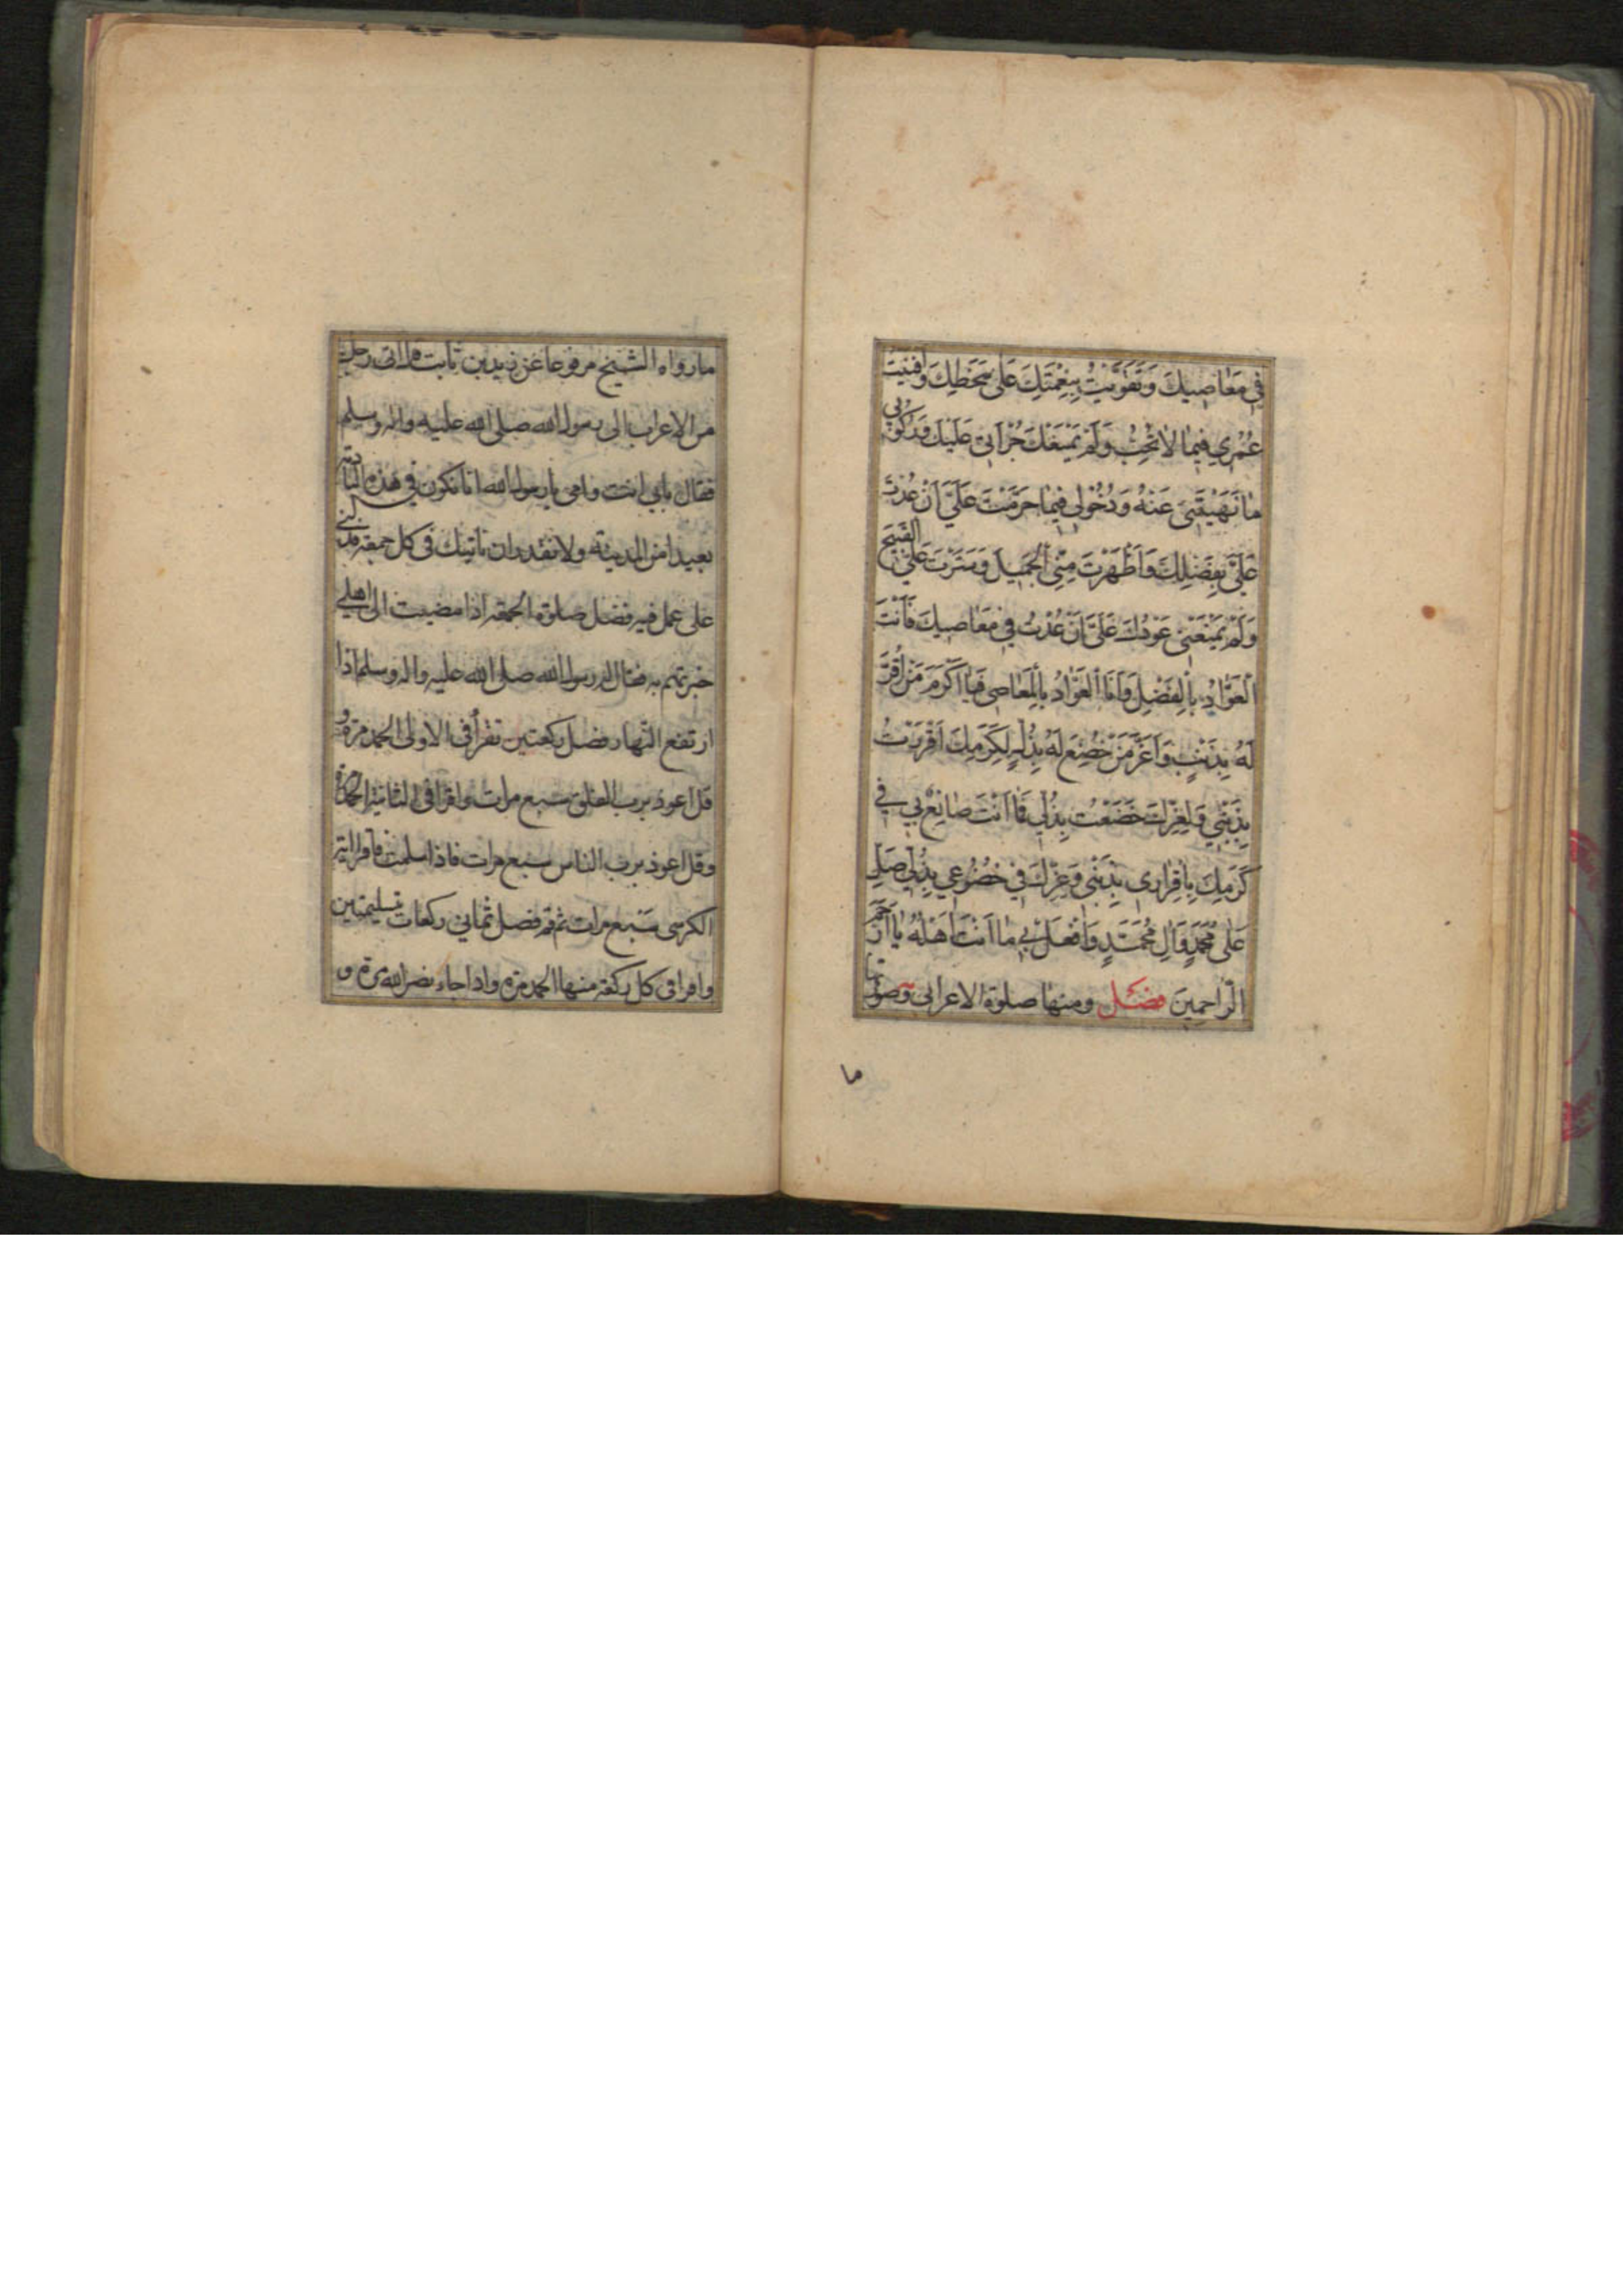 في مَعَاصِيكَ وَتَقَوَّيْتُ بِنِعْمَتِكَ عَلَى سَخَطِكَ وَاَفْنَيْتُ
عُمْرِي فِيمَا لاٰ تُحِبُّ وَلَمْ يَمْنَعْكَ جُرْأَتِي عَلَيْكَ وَرُكُوبِي
مٰا نَهَيْتَنِي عَنْهُ وَدُخُولِي فِيمَا حَرَّمْتَ عَلَيَّ اَنْ عُدْتَ
عَلَيَّ بِفَضْلِكَ وَاَظْهَرْتَ مِنِّي الْجَمِيلَ وَسَتَرْتَ عَلَيَّ القَبِيحَ
وَلَمْ يَمْنَعْنِي عَوْدُكَ عَلَيَّ اَنْ عُدْتُ فِي مَعَاصِيكَ فَاَنْتَ
الْعَوّٰادُ بِالْفَضْلِ وَاَنَا الْعَوّٰادُ بِالْمَعٰاصِي فَيٰا اَكْرَمَ مَنْ اُقِرَّ
لَهُ بِذَنْبٍ وَاَعَزَّ مَنْ خُضِعَ لَهُ بِذُلٍّ لِكَرَمِكَ اَقْرَرْتُ
بِذَنْبِي وَلِعِزِّكَ خَضَعْتُ بِذُلِّي فَمٰا اَنْتَ صٰانِعٌ بِي فِي
كَرَمِكَ بِاِقْرٰارِي بِذَنْبِي وَعِزِّكَ فِي خُضُوعِي بِذُلِّي صَلِّ
عَلٰى مُحَمَّدٍ وَاٰلِ مُحَمَّدٍ وَافْعَلْ بِي مٰا اَنْتَ اَهْلُهُ يٰا اَرْحَمَ
الرّٰاحِمِينَ فصل ومنها صلوة الاعرابى وصورتها
ما
ما رواه الشيخ مرفوعا عن زيد بن ثابت قال اتى رجل
من الاعراب الى رسول الله صلى الله عليه واله وسلم
فقال بابى انت وامى يا رسول الله انا نكون فى هذه البادية
بعيدا من المدينة ولا نقدر ان ناتيك فى كل جمعة فدلنى
على عمل فيه فضل صلوة الجمعة اذا مضيت الى اهلى
خبرتهم به فقال له رسول الله صلى الله عليه واله وسلم اذا
ارتفع النهار فصل ركعتين تقرأ فى الاولى الحمد مرة و
قل اعوذ برب الفلق سبع مرات واقرا فى الثانية الحمد مرة
وقل اعوذ برب الناس سبع مرات فاذا سلمت فاقرا اية
الكرسى سبع مرات ثم قم فصل ثمانى ركعات بتسليمتين
واقرا فى كل ركعة منها الحمد مرة واذا جاء نصر الله مرة و